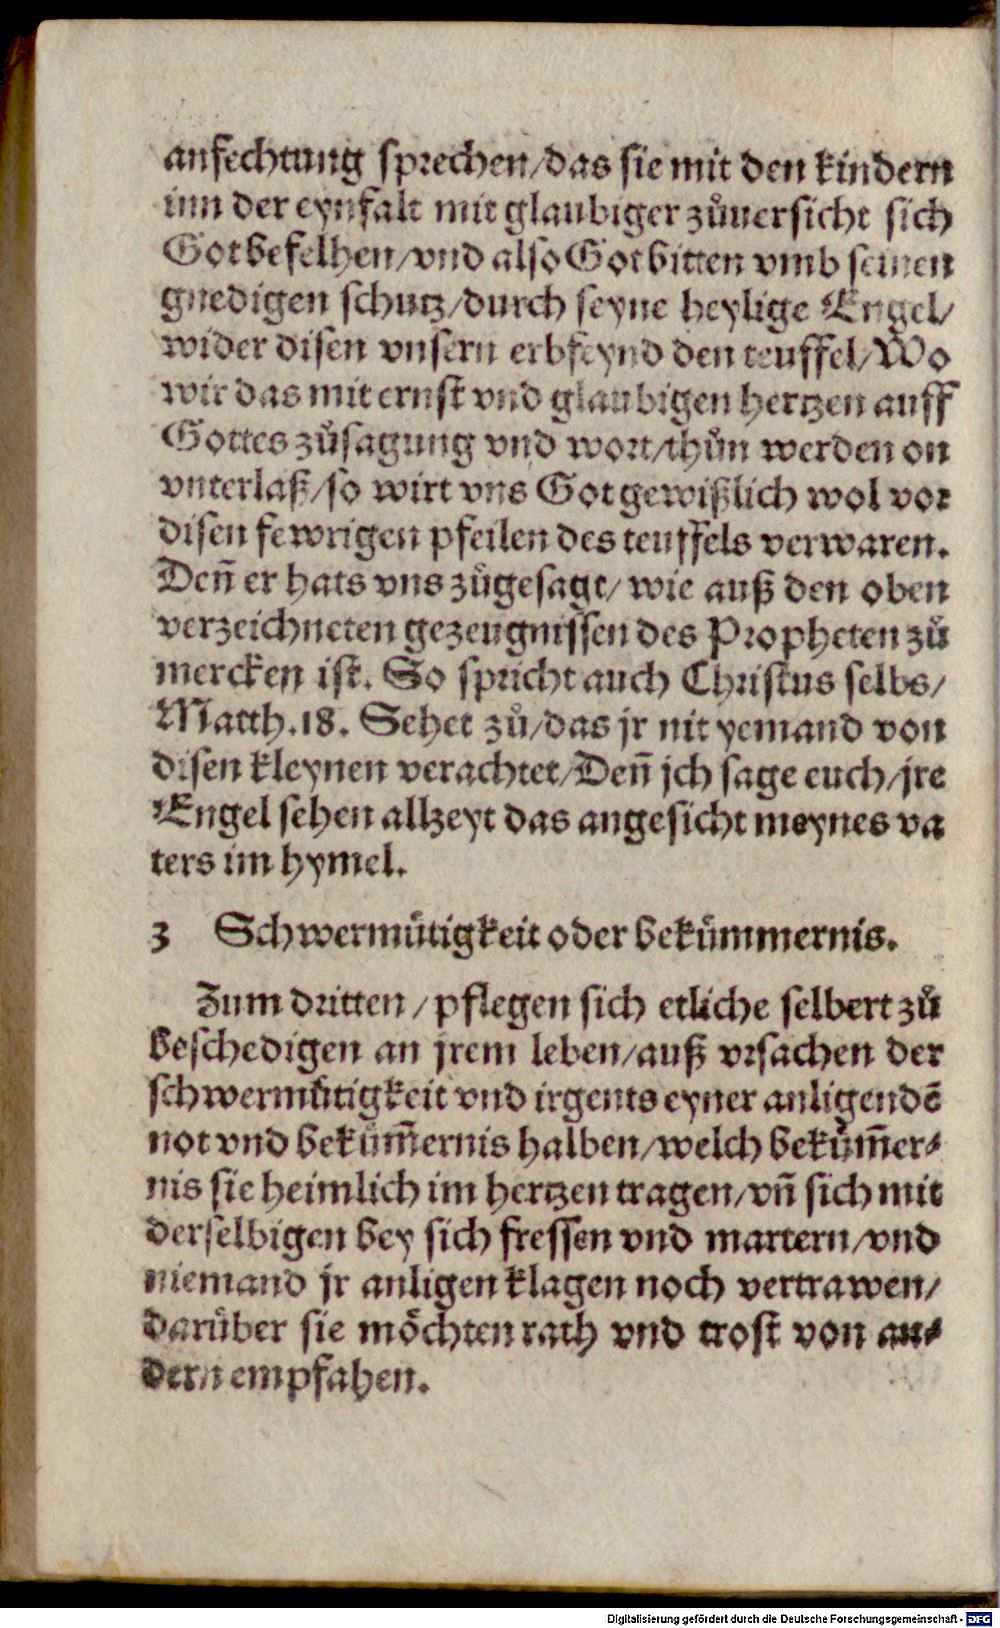 anfechtung sprechen/das sie mit den kindern
inn der eynfalt mit glaubiger zůuersicht sich
Got befelhen/vnd also Got bitten vmb seinen
gnedigen schutz/durch seyne heylige Engel/
wider disen vnsern erbfeynd den teuffel/Wo
wir das mit ernst vnd glaubigen hertzen auff
Gottes zůsagung vnd wort/thůn werden on
vnterlaß/so wirt vns Got gewißlich wol vor
disen fewrigen pfeilen des teuffels verwaren.
Deñ er hats vns zůgesagt/ wie auß den oben
verzeichneten gezeugnissen des Propheten zů
mercken ist. So spricht auch Christus selbs/
Matth.18. Sehet zů/das jr nit yemand von
disen kleynen verachtet/Deñ jch sage euch/jre
Engel sehen allzeyt das angesicht meynes va
ters im hymel.
3 Schwermůtigkeit oder bekům̃ernis.
Zum dritten/pflegen sich etliche selbert zů
beschedigen an jrem leben/auß vrsachen der
schwermůtigkeit vnd irgents eyner anligendē
not vnd bekům̃ernis halben/welch bekům̃er⸗
nis sie heimlich im hertzen tragen/vñ sich mit
derselbigen bey sich fressen vnd martern/vnd
niemand jr anligen klagen noch vertrawen/
darüber sie möchten rath vnd trost von an⸗
dern empfahen.
Digitalisierung gefördert durch die Deutsche Forschungsgemeinschaft - DFG